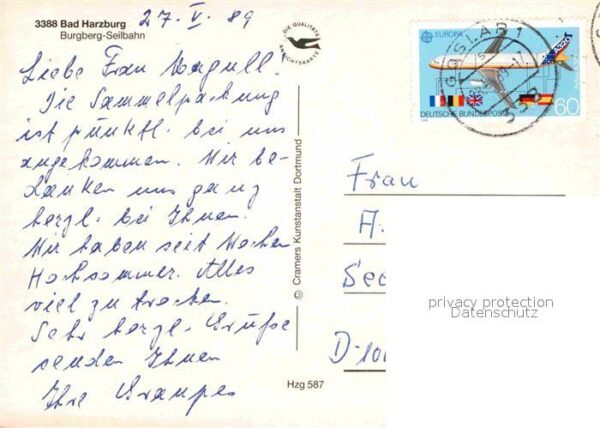 3388 Bad Harzburg
Burgberg-Seilbahn
27. V. 89
DIE QUALITÄTS
ANSICHTSKARTE
Liebe Frau Nagull!
Die Sammelpackung
ist pünktl. bei uns
angekommen. Wir be-
danken uns ganz
herzl. bei Ihnen.
Wir haben seit Wochen
Hochsommer. Alles
viel zu trocken.
Sehr herzl. Grüße
senden Ihnen
Ihre
© Cramers Kunstanstalt Dortmund
Hzg 587
EUROPA
A320
60
DEUTSCHE BUNDESPOST
GOSLAR 1
Frau
A.
See
D-100
privacy protection
Datenschutz